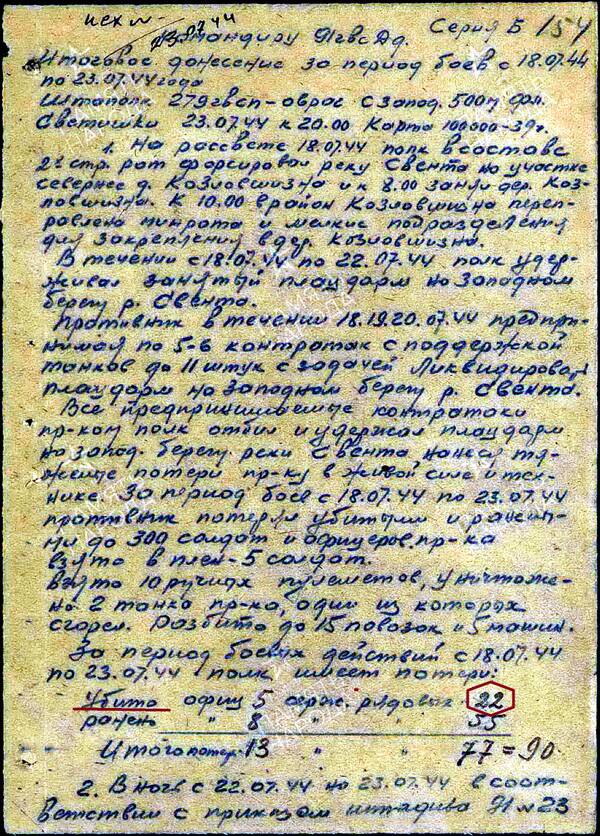 исх №
23.07.44
Серия Б 154
Командиру 91гвсд.
Итоговое донесение за период боев с 18.07.44
по 23.07.44 года
Штаполк 279гвсп - овраг с запад. 500м фл.
23.07.44 к 20.00 Карта 100000-39г.
1. На рассвете 18.07.44 полк в составе
2х стр. рот форсировал реку Свента на участке
севернее д. Козловшизна и к 8.00 занял дер. Коз-
ловшизна. К 10.00 в район Козловшизна перепр-
равлена минрота и мелкие подразделения
для закрепления в дер. Козловшизна.
В течении с 18.07.44 по 22.07.44 полк удер-
живал занятый плацдарм на западном
берегу р. Свента.
Противник в течении 18.19.20.07.44 предпри-
нимал по 5-6 контратак с поддержкой
танков до 11 штук с задачей ликвидировать
плацдарм на западном берегу р. Свента.
Все предпринимаемые контратаки
пр-ком полк отбил и удержал плацдарм
на запад. берегу реки Свента нанеся тя-
желые потери пр-ку в живой силе и тех-
нике. За период боев с 18.07.44 по 23.07.44
противник потерял убитыми и ранены-
ми до 300 солдат и офицеров. пр-ка
взято в плен - 5 солдат.
Взято 10 ручных пулеметов, уничтоже-
но 2 танка пр-ка, один из которых
сгорел. Разбито до 15 повозок и 5 машин.
За период боевых действий с 18.07.44
по 23.07.44 полк имеет потери:
Убито офиц 5 серж. рядовых 22
ранено " 8 " " 55
Итого потер. 13 " " 77 = 90
2. В ночь с 22.07.44 на 23.07.44 в соот-
ветствии с приказом штадива 91 №23